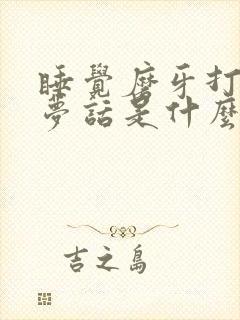 睡覺磨牙打
夢話是什麼
吉之島